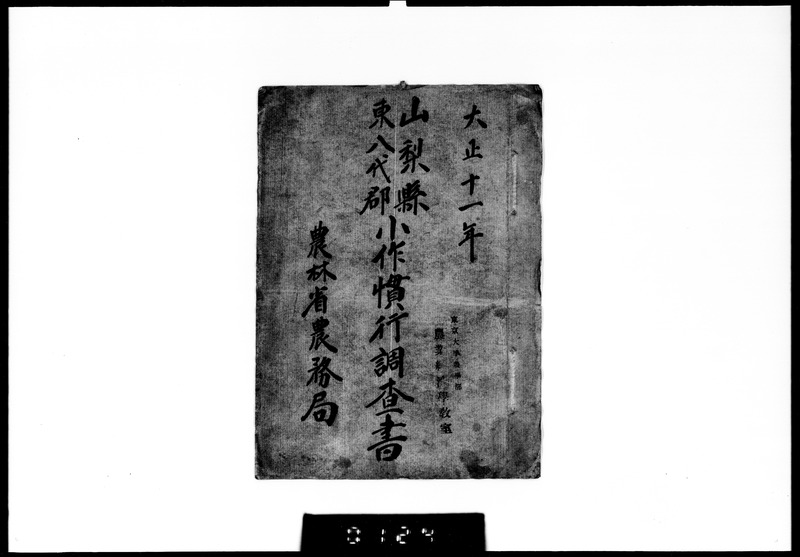 大正十一年
山梨縣
東八代郡
小作慣行調査書
農林省農務局
東京大学農学部
學教室
0124